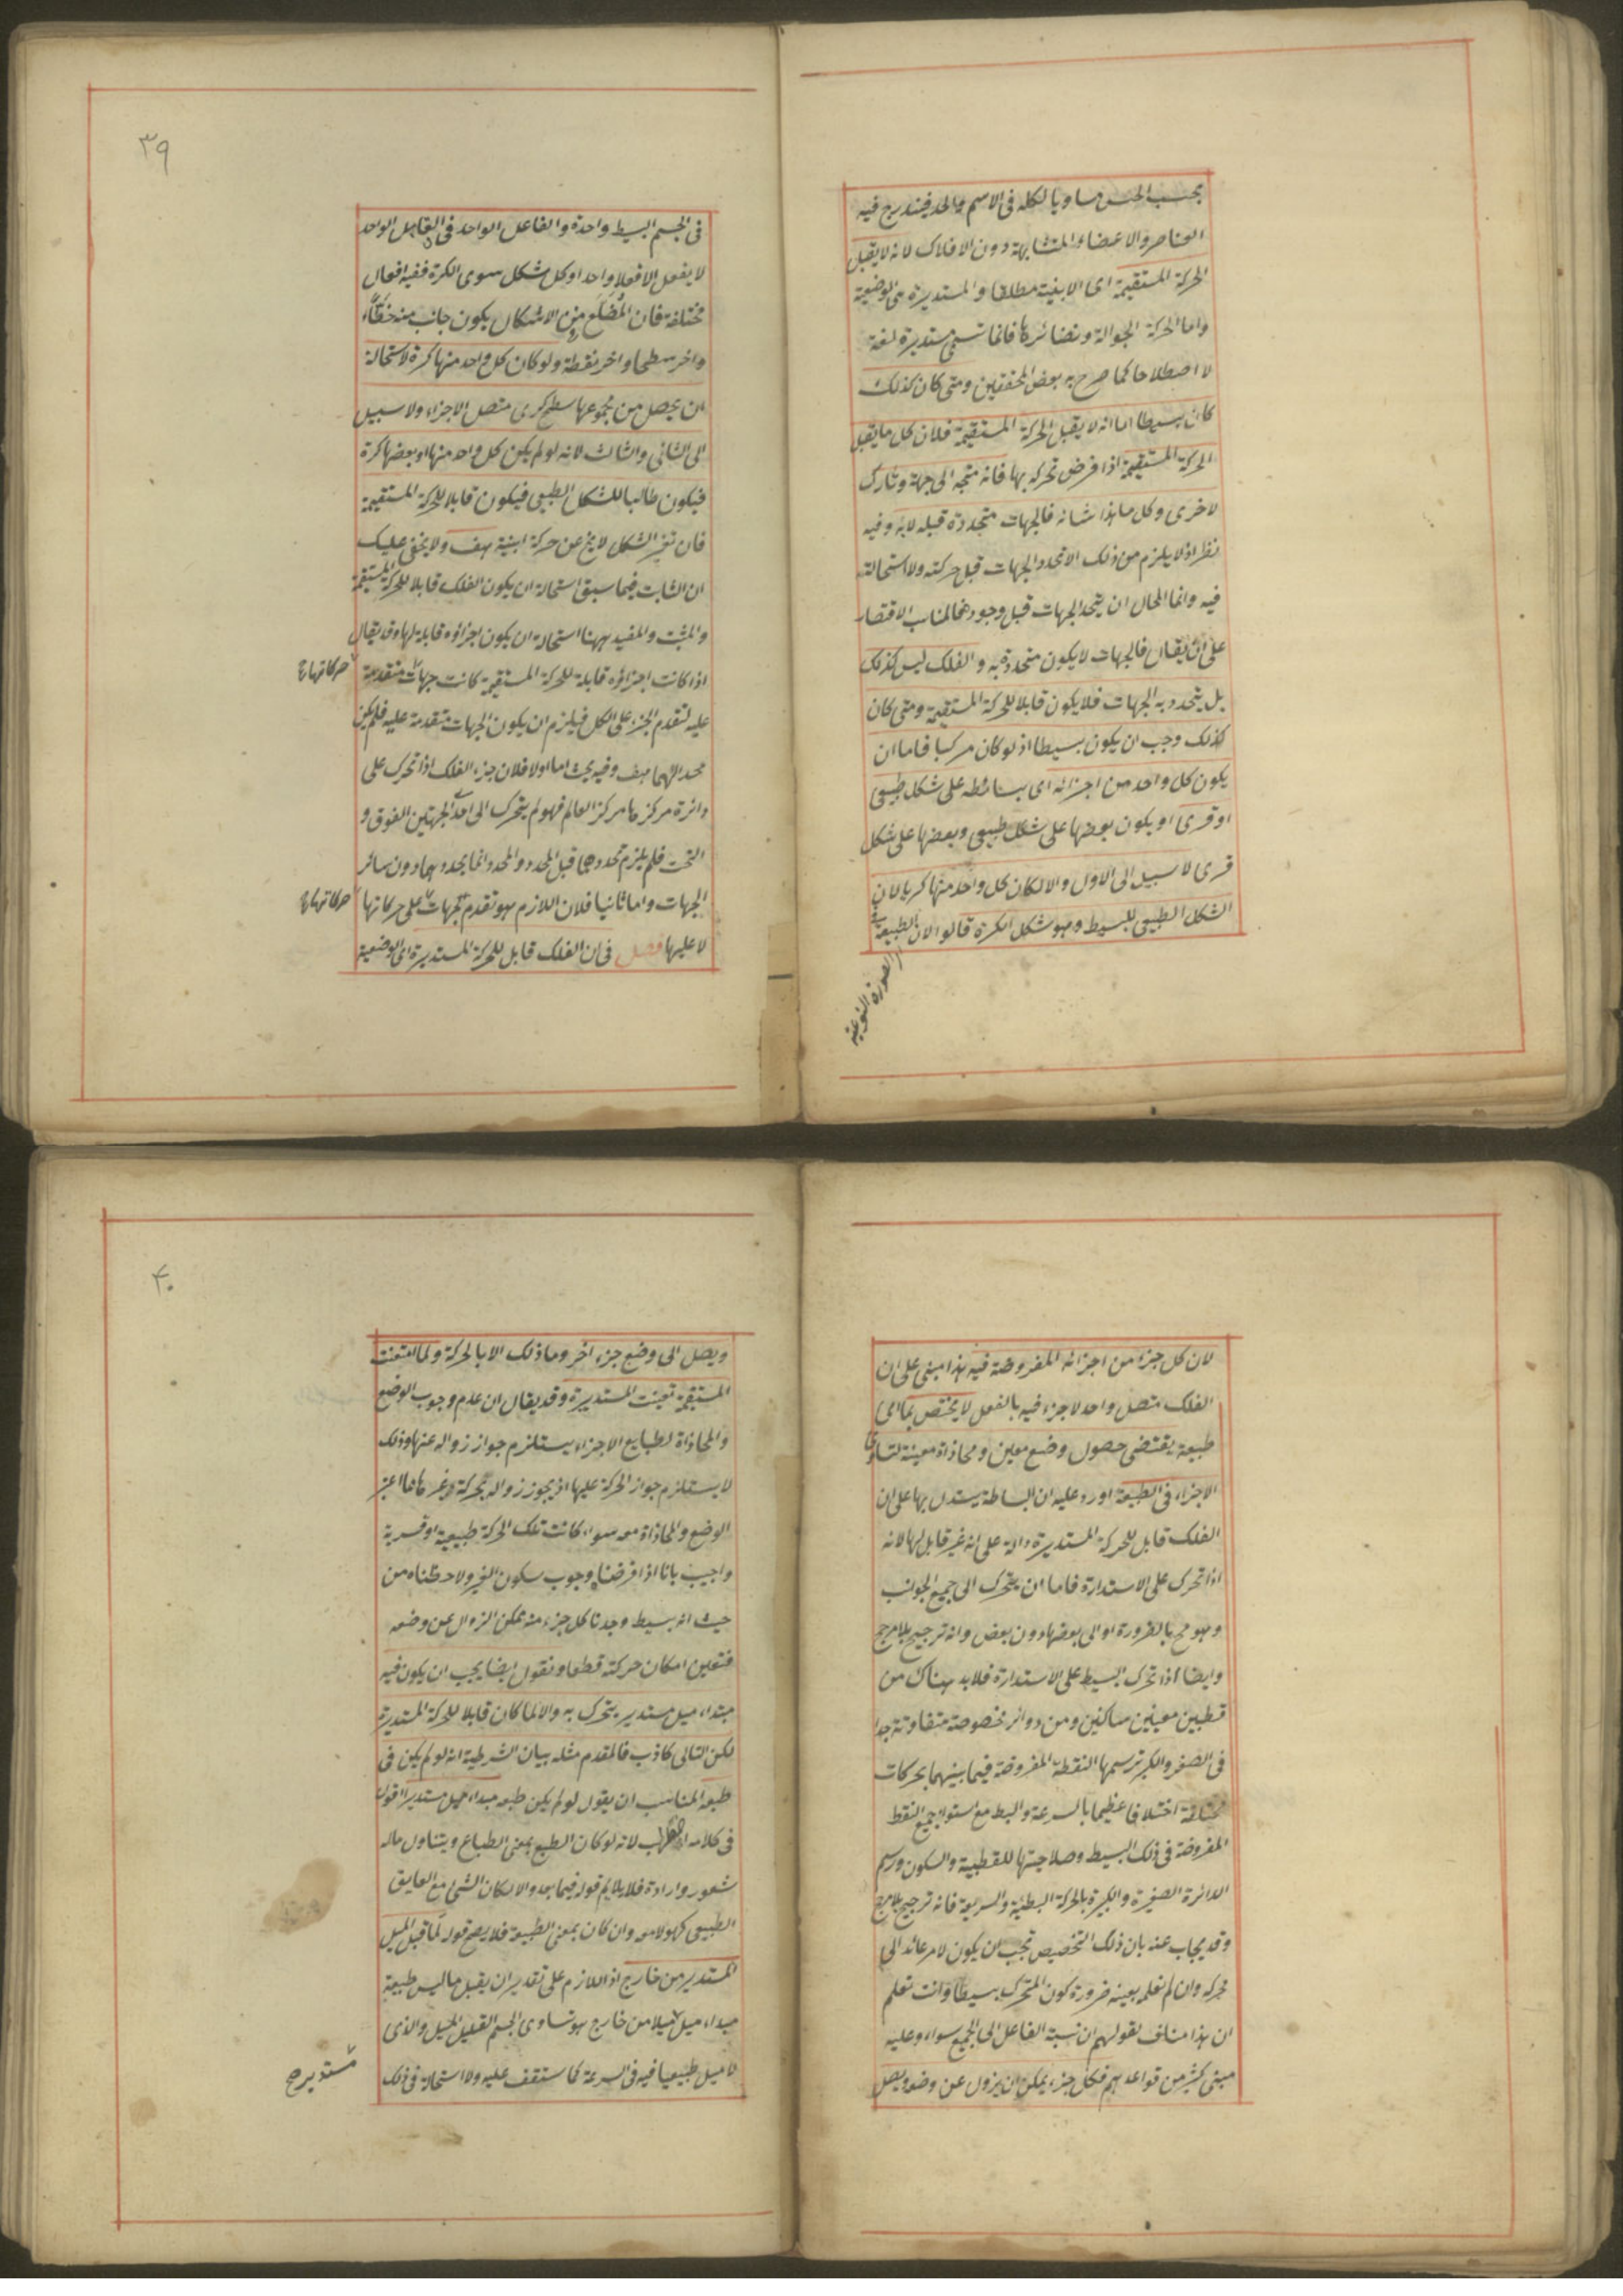 بحسب الحس مساويا لكله فى الاسم والحد فيندرج فيه
العناصر والاعضاء المتشابهة دون الافلاك لانه لا يقبل
الحركة المستقيمة اى الاينية مطلقا والمستديرة هى الوضعية
واما الحركة الجوالة ونضائرها فانما تسمى مستديرة لغة
لا اصطلاحا كما صرح به بعض المحققين ومتى كان كذلك
كان بسيطا اما انه لا يقبل الحركة المستقيمة فلان كل ما يقبل
الحركة المستقيمة اذا فرض تحركه بها فانه متجه الى جهة وتارك
لاخرى وكل ما هذا شانه فالجهات متحددة قبله لا به وفيه
نظر اذ لا يلزم من ذلك الا تحدد الجهات قبل حركته ولا استحالة
فيه وانما المحال ان يتحدد الجهات قبل وجوده فالمناسب الاقتصار
على ان يقال فالجهات لا يكون متحددة به والفلك ليس كذلك
بل يتحدد به الجهات فلا يكون قابلا للحركة المستقيمة ومتى كان
كذلك وجب ان يكون بسيطا اذ لو كان مركبا فاما ان
يكون كل واحد من اجزائه اى بسائطه على شكل طبيعى
او قسرى او يكون بعضها على شكل طبيعى وبعضها على شكل
قسرى لا سبيل الى الاول والا لكان كل واحد منها كريا لان
الشكل الطبيعى للبسيط هو شكل الكرة قالوا لان الطبيعة
الصورة النوعية
٣٩
فى الجسم البسيط واحدة والفاعل الواحد فى القابل الواحد
لا يفعل الا فعلا واحدا وكل شكل سوى الكرة ففيه افعال
مختلفة فان المُضَلَّع من الاشكال يكون جانب منه خطًّا
واخر سطحا واخر نقطة ولو كان كل واحد منها كرة لاستحالة
ان يحصل من مجموعها سطح كرى متصل الاجزاء ولا سبيل
الى الثانى والثالث لانه لو لم يكن كل واحد منها او بعضها كرة
فيكون طالبا للشكل الطبيعى فيكون قابلا للحركة المستقيمة
فان تغير الشكل لا يخ عن حركة اينية هف ولا يخفى عليك
ان الثابت فيما سبق استحالة ان يكون الفلك قابلا للحركة المستقيمة
والمثبت والمفيد ههنا استحالة ان يكون اجزاؤه قابلة لها وقد يقال
اذا كانت اجزاؤه قابلة للحركة المستقيمة كانت جهات متقدمة
حركاتها
عليه لتقدم الجزء على الكل فيلزم ان يكون الجهات متقدمة عليه فلم يكن
محددا لها هف وفيه بحث اما اولا فلان جزء الفلك اذا تحرك على
دائرة مركزها مركز العالم فهو لم يتحرك الى احد الجهتين الفوق و
التحت فلم يلزم تحددهما قبل المحدد والمحدد انما يحددهما دون سائر
الجهات واما ثانيا فلان اللازم هو تقدم الجهات على حركاتها
حركاتها
لا عليها فصل فى ان الفلك قابل للحركة المستديرة اى الوضعية
لان كل جزء من اجزائه المفروضة فيه هذا مبنى على ان
الفلك متصل واحد لا جزء فيه بالفعل لا يختص بما اى
طبيعة يقتضى حصول وضع معين ومحاذاة معينة لتساوى
الاجزاء فى الطبيعة اورد عليه ان البساطة يستدل بها على ان
الفلك قابل للحركة المستديرة دالة على انه غير قابل لها لانه
اذا تحرك على الاستدارة فاما ان يتحرك الى جميع الجوانب
وهو مح بالضرورة او الى بعضها دون بعض وانه ترجيح بلا مرجح
وايضا اذا تحرك البسيط على الاستدارة فلا بد هناك من
قطبين معينين ساكنين ومن دوائر مخصوصة متفاوتة جدا
فى الصغر والكبر ترسمها النقطة المفروضة فيما بينهما بحركات
مختلفة اختلافا عظيما بالسرعة والبطء مع استواء جميع النقط
المفروضة فى ذلك البسيط وصلاحيتها للقطبية والسكون ورسم
الدائرة الصغيرة والكبيرة بالحركة البطيئة والسريعة فانه ترجيح بلا مرجح
وقد يجاب عنه بان ذلك التخصيص يجب ان يكون لامر عائد الى
محركه وان لم نعلمه بعينه ضرورة كون المتحرك بسيطا وانت تعلم
ان هذا مناف لقولهم ان نسبة الفاعل الى الجميع سواء وعليه
مبنى كثير من قواعدهم فكل جزء يمكن ان يزول عن وضعه ويصل
٤٠
ويصل الى وضع جزء اخر وما ذلك الا بالحركة ولما امتنعت
المستقيمة تعينت المستديرة وقد يقال ان عدم وجوب الوضع
والمحاذاة لطبايع الاجزاء يستلزم جواز زواله عنها وذلك
لا يستلزم جواز الحركة عليها اذ يجوز زواله بحركة وغيرها مما اعتبر
الوضع والمحاذاة معه سواء كانت تلك الحركة طبيعية او قسرية
واجيب بانا اذا فرضنا وجوب سكون الغير ولاحظناه من
حيث انه بسيط وجدنا كل جزء منه ممكن الزوال عن وضعه
فتعين امكان حركته قطعا ونقول ايضا يجب ان يكون فيه
مبتداء ميل مستدير يتحرك به والا لما كان قابلا للحركة المستديرة
لكن التالى كاذب فالمقدم مثله بيان الشرطية انه لو لم يكن فى
طبعه المناسب ان يقول لو لم يكن طبعه مبداء ميل مستدير اقول
فى كلامه اضطراب لانه لو كان الطبع بمعنى الطباع ويتناول ماله
شعور وارادة فلا يلايم قوله فيما بعد والا لكان الشئ مع العايق
الطبيعى كهو لا معه وان كان بمعنى الطبيعة فلا يصح قوله لما قبل الميل
المستدير من خارج اذ اللازم على تقدير ان يقبل ما ليس طبيعة
مبداء ميل ميلا من خارج هو تساوى الجسم القليل الميل والذى
مستدير صح
لا ميل طبيعيا فيه فى السرعة كما ستقف عليه ولا استحالة فى ذلك